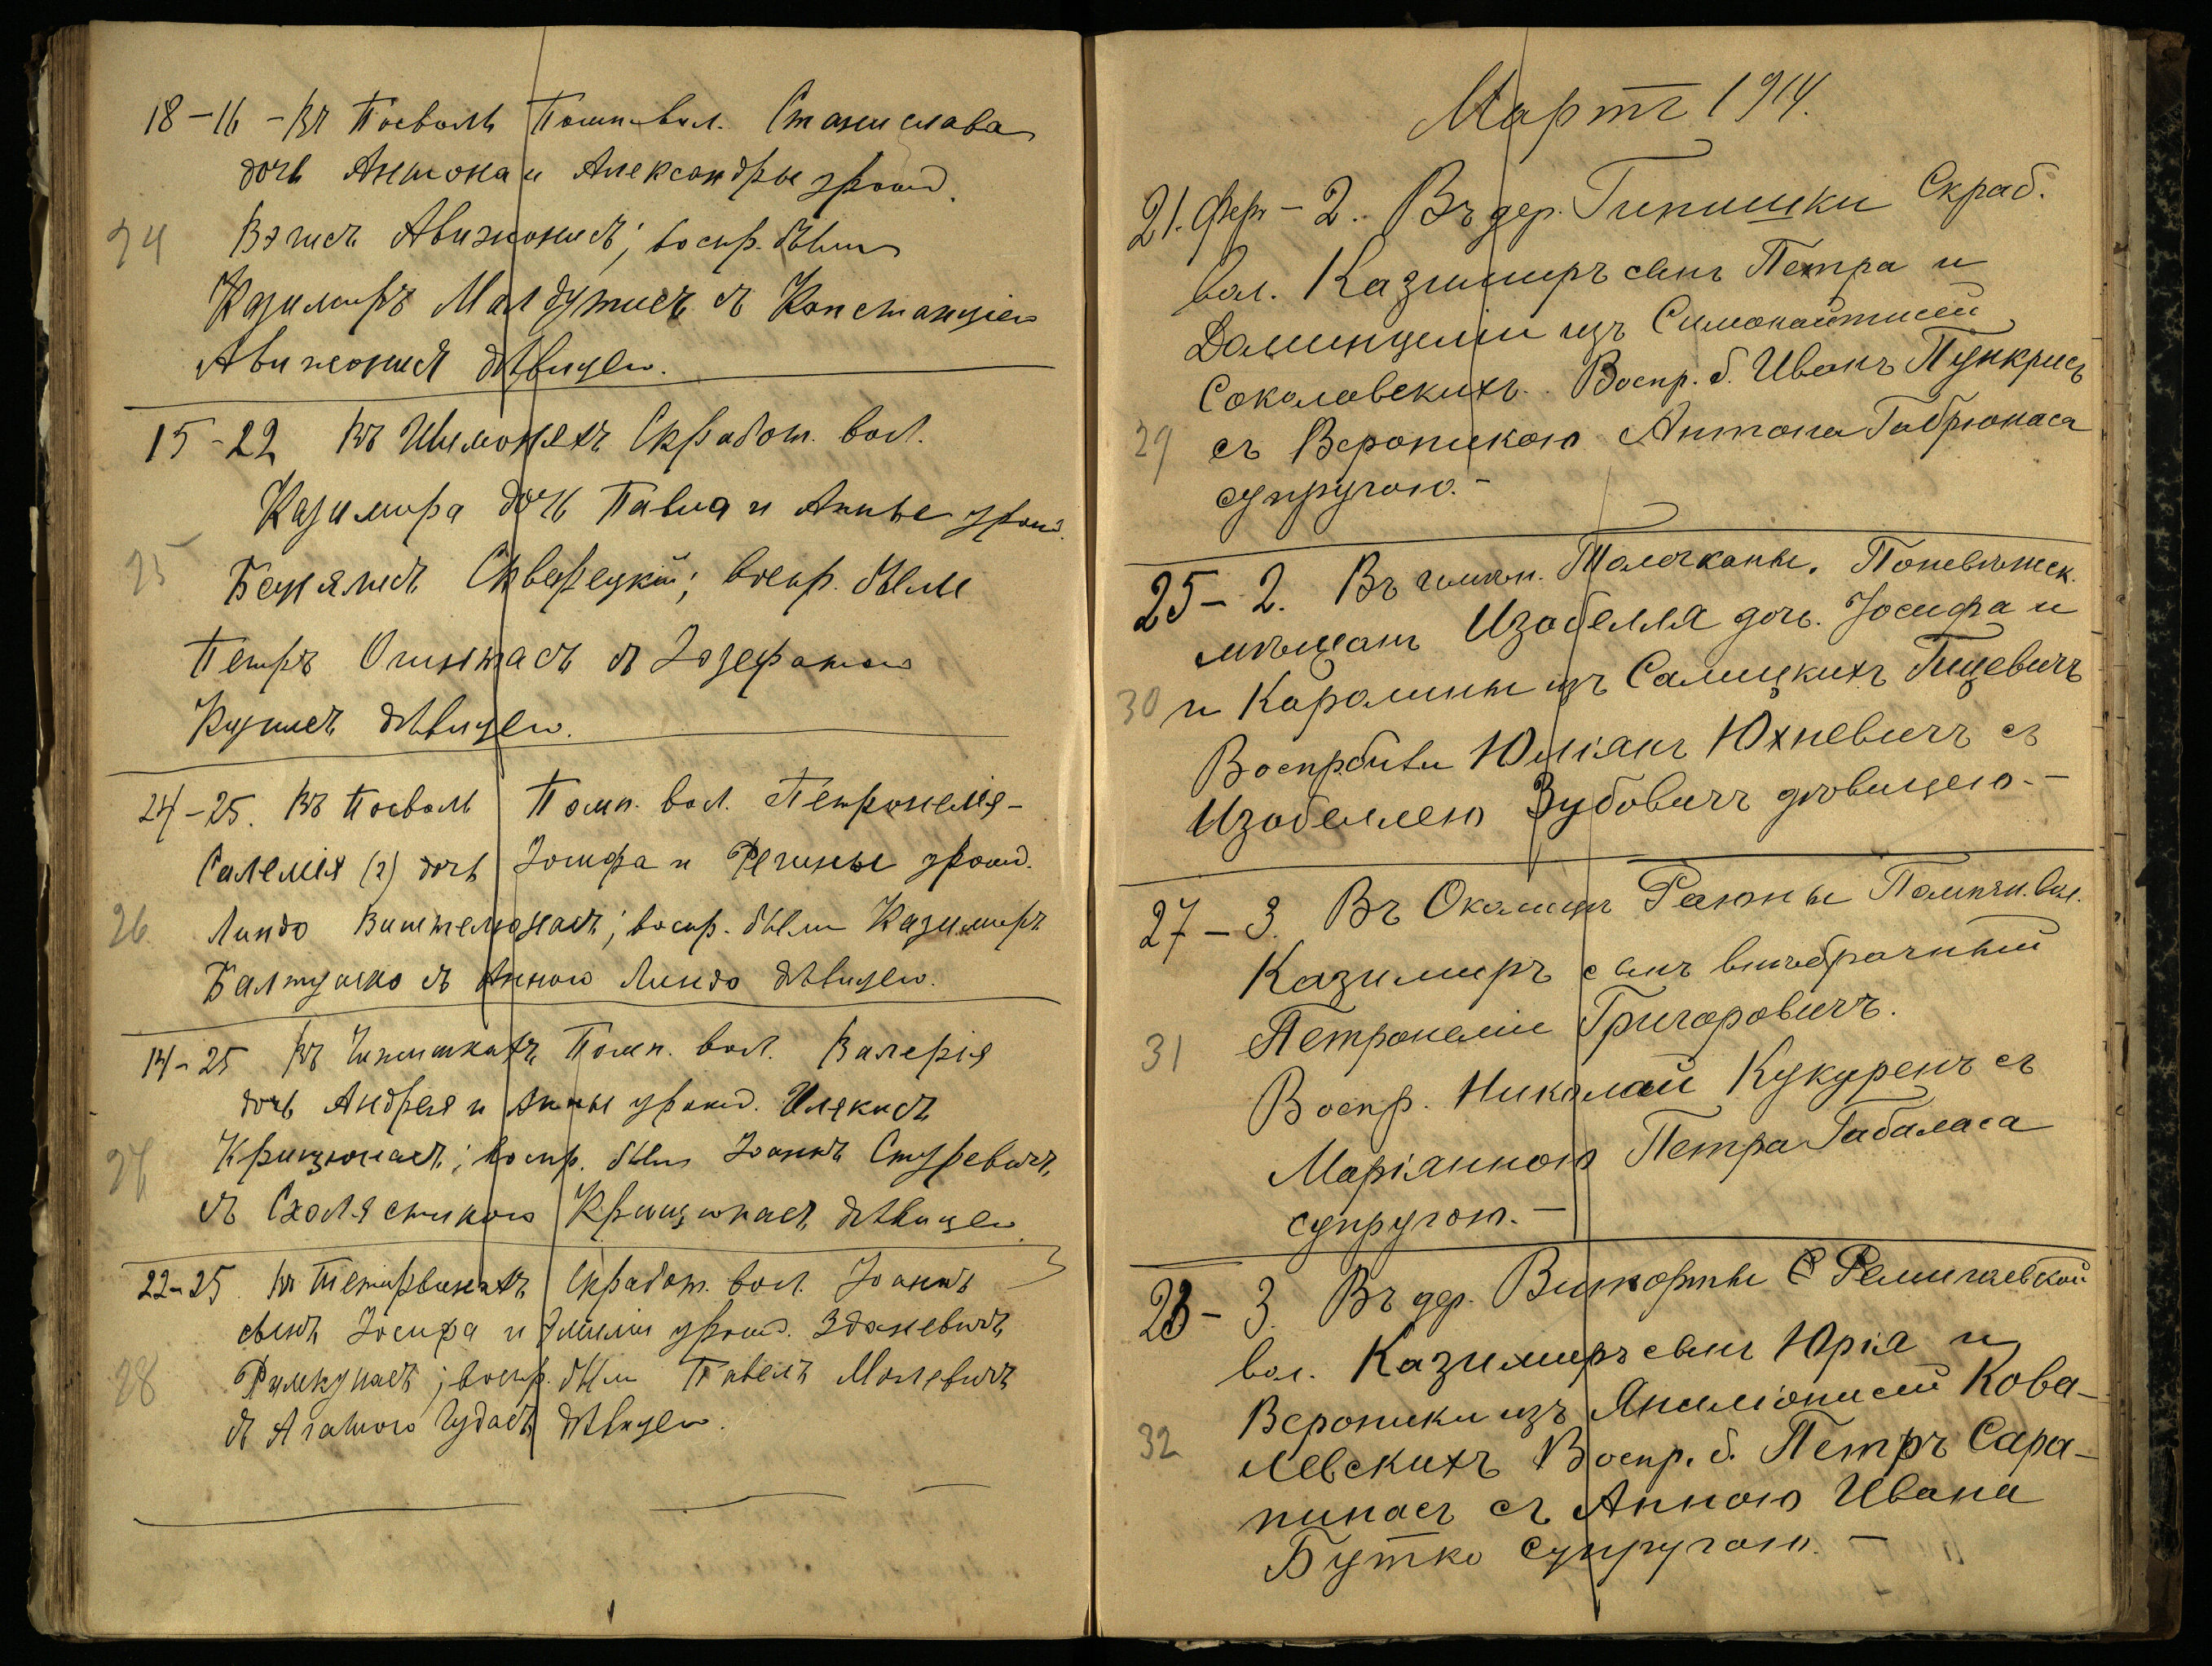 18-16 - Въ Посволь Помп. вол. Станислава
дочь Антона и Александры урожд.
24 Вэгисъ Авижонисъ; воспр. были
Казимиръ Малдутисъ съ Констанціею
Авижонисъ дѣвицею.
15-22 Въ Шимоняхъ Скработ. вол.
Казимира дочь Павла и Анны урожд.
25 Скверецкій; воспр. были
Петръ Огинтасъ съ Іозефатою
дѣвицею.
24-25. Въ Посволь Помп. вол. Петронелія-
Салемія (2) дочь Іосифа и Регины урожд.
26 Линдо; воспр. были Казимиръ
Балтушко съ Анною Линдо дѣвицею.
14-25 Въ Чипишкахъ Помп. вол. Валерія
дочь Андрея и Анны урожд. Илякисъ
27 Крищюнасъ; воспр. были Іоаннъ Стуревичъ
съ Схолястикою Крищюнасъ дѣвицею.
22-25. Въ Тетирвинахъ Скработ. вол. Іоаннъ
сынъ Іосифа и Эмиліи урожд. Здоневичъ
28 Римкунасъ; воспр. были Павелъ Молевичъ
съ Агатою Чудасъ дѣвицею.
Мартъ 1914.
21. Фер - 2. Въ дер. Гипишки Скраб.
вол. Казимиръ сынъ Петра и
Доминцеліи изъ Симонайтисей
Соколовскихъ. Воспр. б. Иванъ Пункрисъ
29 съ Вероникою Антона Габрюнаса
супругою. -
25 - 2. Въ Толочканы. Поневѣжск.
мѣщанъ Изабелля дочь. Іосифа и
30 и Каролины изъ Салицкихъ Гицевичъ
Воспр. были Юліянъ Юхневичъ съ
Изабеллею Зубовичъ дѣвицею. -
27 - 3. Въ Околицѣ Раюны Помпян. вол.
Казимиръ сынъ внѣбрачный
31 Петронеліи Григоровичъ.
Воспр. Николай Кукуренъ съ
Маріянною Петра Габаласа
супругою. -
23 - 3. Въ дер. Викорты Ремигаевской
вол. Казимиръ сынъ Юрія и
Вероники изъ Янилюнисей Кова-
32 левскихъ Воспр. б. Петръ Сара-
пинасъ съ Анною Ивана
Бутко супругою. -